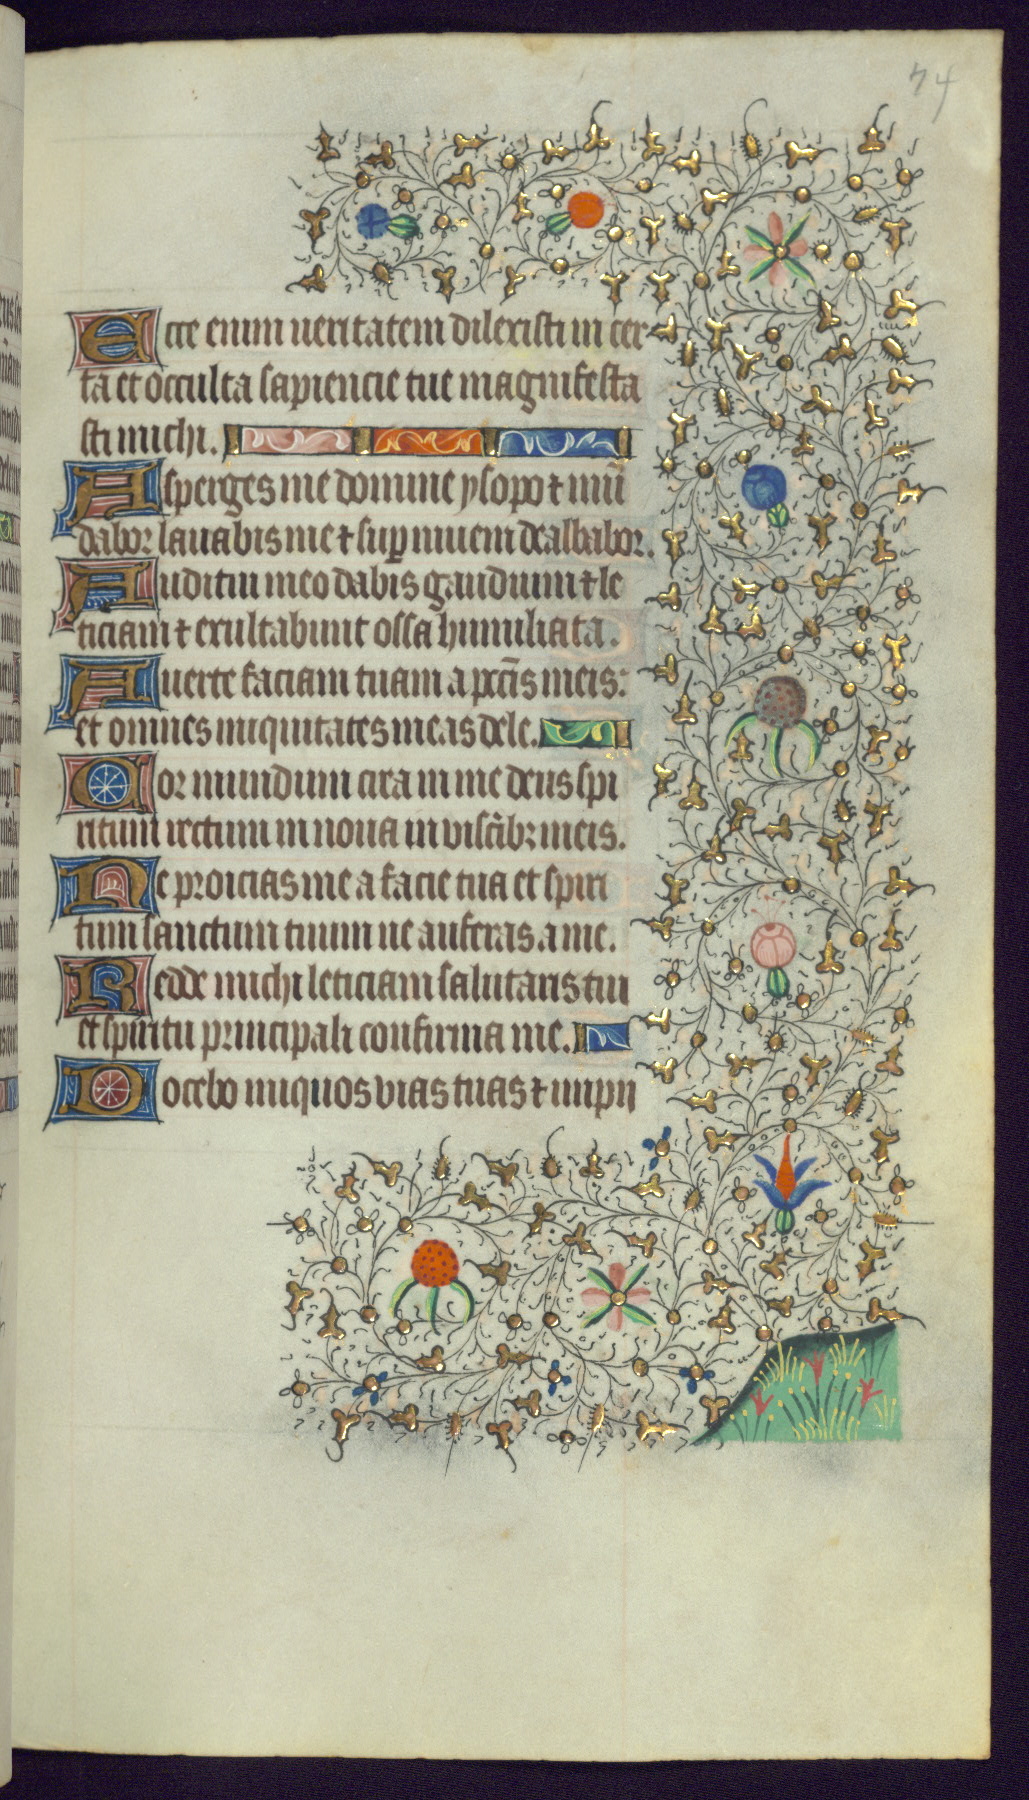 74
Ecce enim veritatem dilexisti in cer
ta et occulta sapiencie tue magnifesta
sti michi.
Asperges me domine ysopo ⁊ mūn
dabor lavabis me ⁊ sup̲ nivem dealbabor.
Auditui meo dabis gaudium ⁊ le
ticiam ⁊ exultabunt ossa humiliata.
Averte faciam tuam a pctīs meis:
et omnes iniquitates meas dele.
Cor mundum crea in me deus spi
ritum rectum in nova in viscīb; meis.
Ne proicias me a facie tua et spiri
tum sanctum tuum ne auferas a me.
Redde michi leticiam salutaris tui
et spiritu principali confirma me.
Docebo iniquos vias tuas ⁊ impii